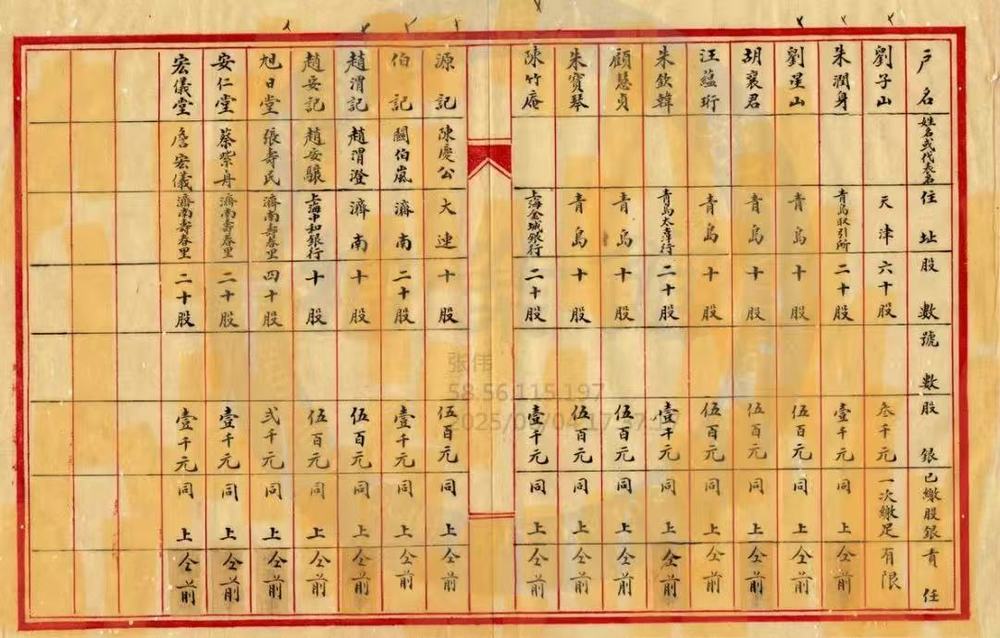 戶名 姓名或代表名 住址 股數 號數 股銀 已繳股銀 責任
劉子山 天津 六十股 叁千元 一次繳足 有限
朱潤身 青島取引所 二十股 壹千元 同上 仝前
劉星山 青島 十股 伍百元 同上 仝前
胡襄君 青島 十股 伍百元 同上 仝前
汪蘊珩 青島 十股 伍百元 同上 仝前
朱欽韓 青島太章行 二十股 壹千元 同上 仝前
顧慧貞 青島 十股 伍百元 同上 仝前
朱寶琴 青島 十股 伍百元 同上 仝前
陳竹庵 上海金城銀行 二十股 壹千元 同上 仝前
源記 陳慶公 大連 十股 伍百元 同上 仝前
伯記 關伯嵐 濟南 二十股 壹千元 同上 仝前
趙渭記 趙渭澄 濟南 十股 伍百元 同上 仝前
趙妥記 趙妥驤 上海中和銀行 十股 伍百元 同上 仝前
旭日堂 張壽民 濟南壽春里 四十股 弍千元 同上 仝前
安仁堂 蔡紫舟 濟南壽春里 二十股 壹千元 同上 仝前
宏儀堂 詹宏儀 濟南壽春里 二十股 壹千元 同上 仝前
张伟
58.56.115.197